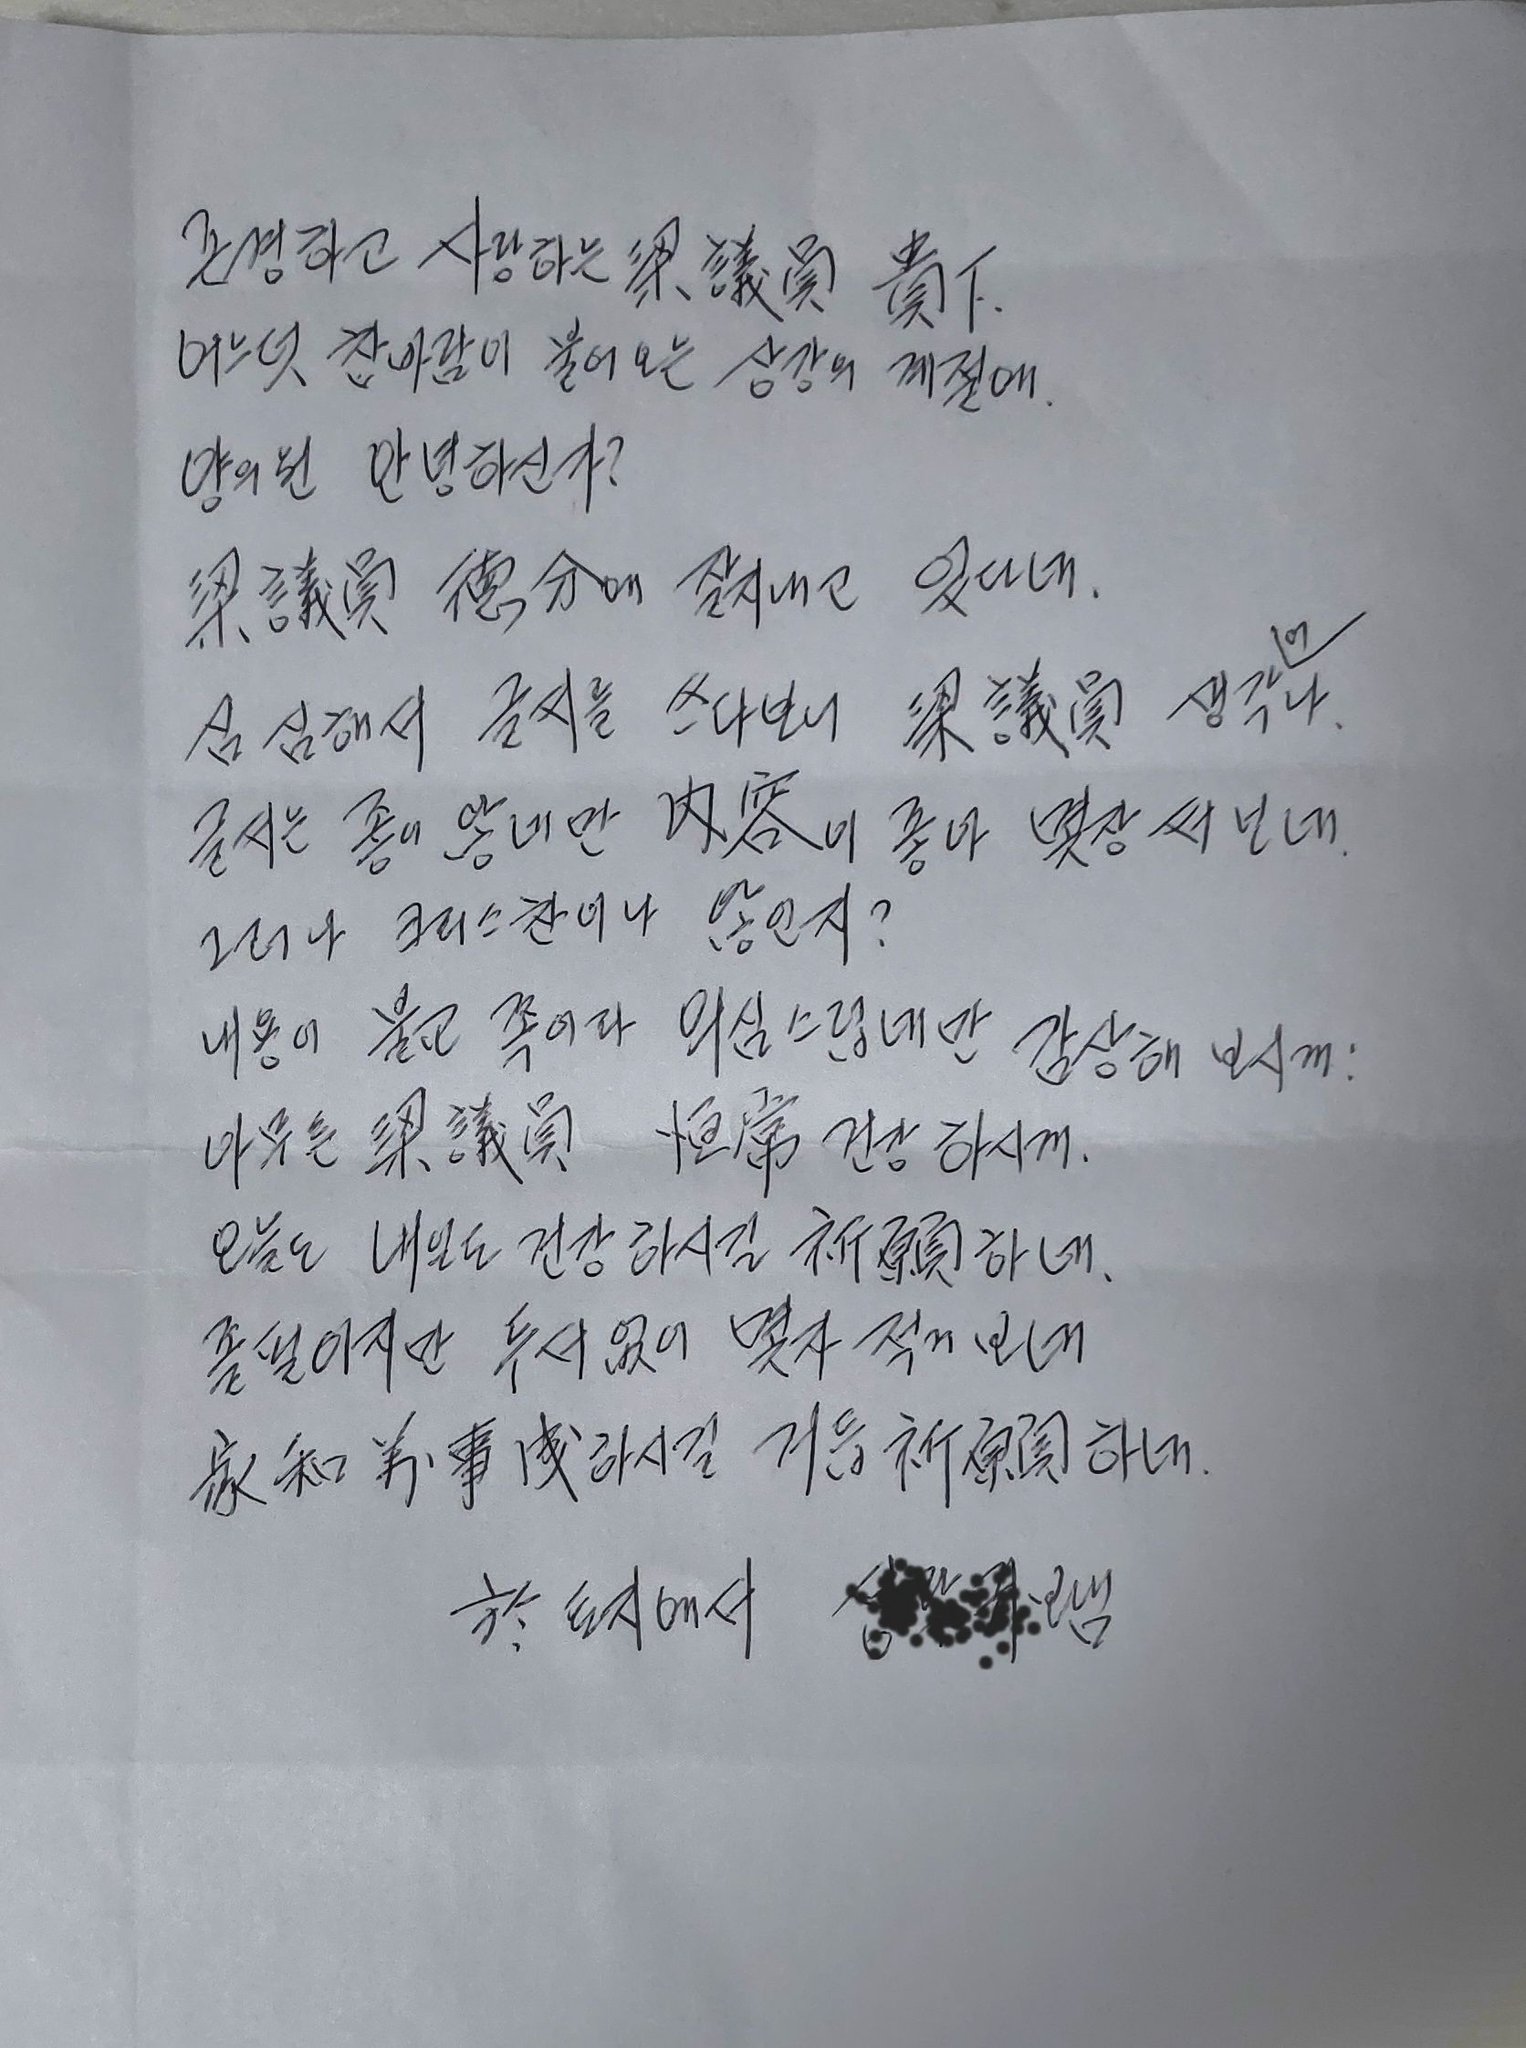 존경하고 사랑하는 梁議員 貴下.
어느덧 찬바람이 불어오는 상강의 계절에.
양의원 안녕하신가?
梁議員 德分에 잘지내고 있다네.
심심해서 글씨를 쓰다보니 梁議員 생각이나.
글씨는 좋지 않네만 內容이 좋아 몇장 써보네.
그러나 크리스찬이나 않인지?
내용이 불교 쪽이라 의심스럽네만 감상해 보시게.
아무튼 梁議員 恒常 건강하시게.
오늘도 내일도 건강하시길 祈願하네.
졸필이지만 두서없이 몇자 적어보네
家和萬事成하시길 거듭 祈願하네.
於 에서 보냄